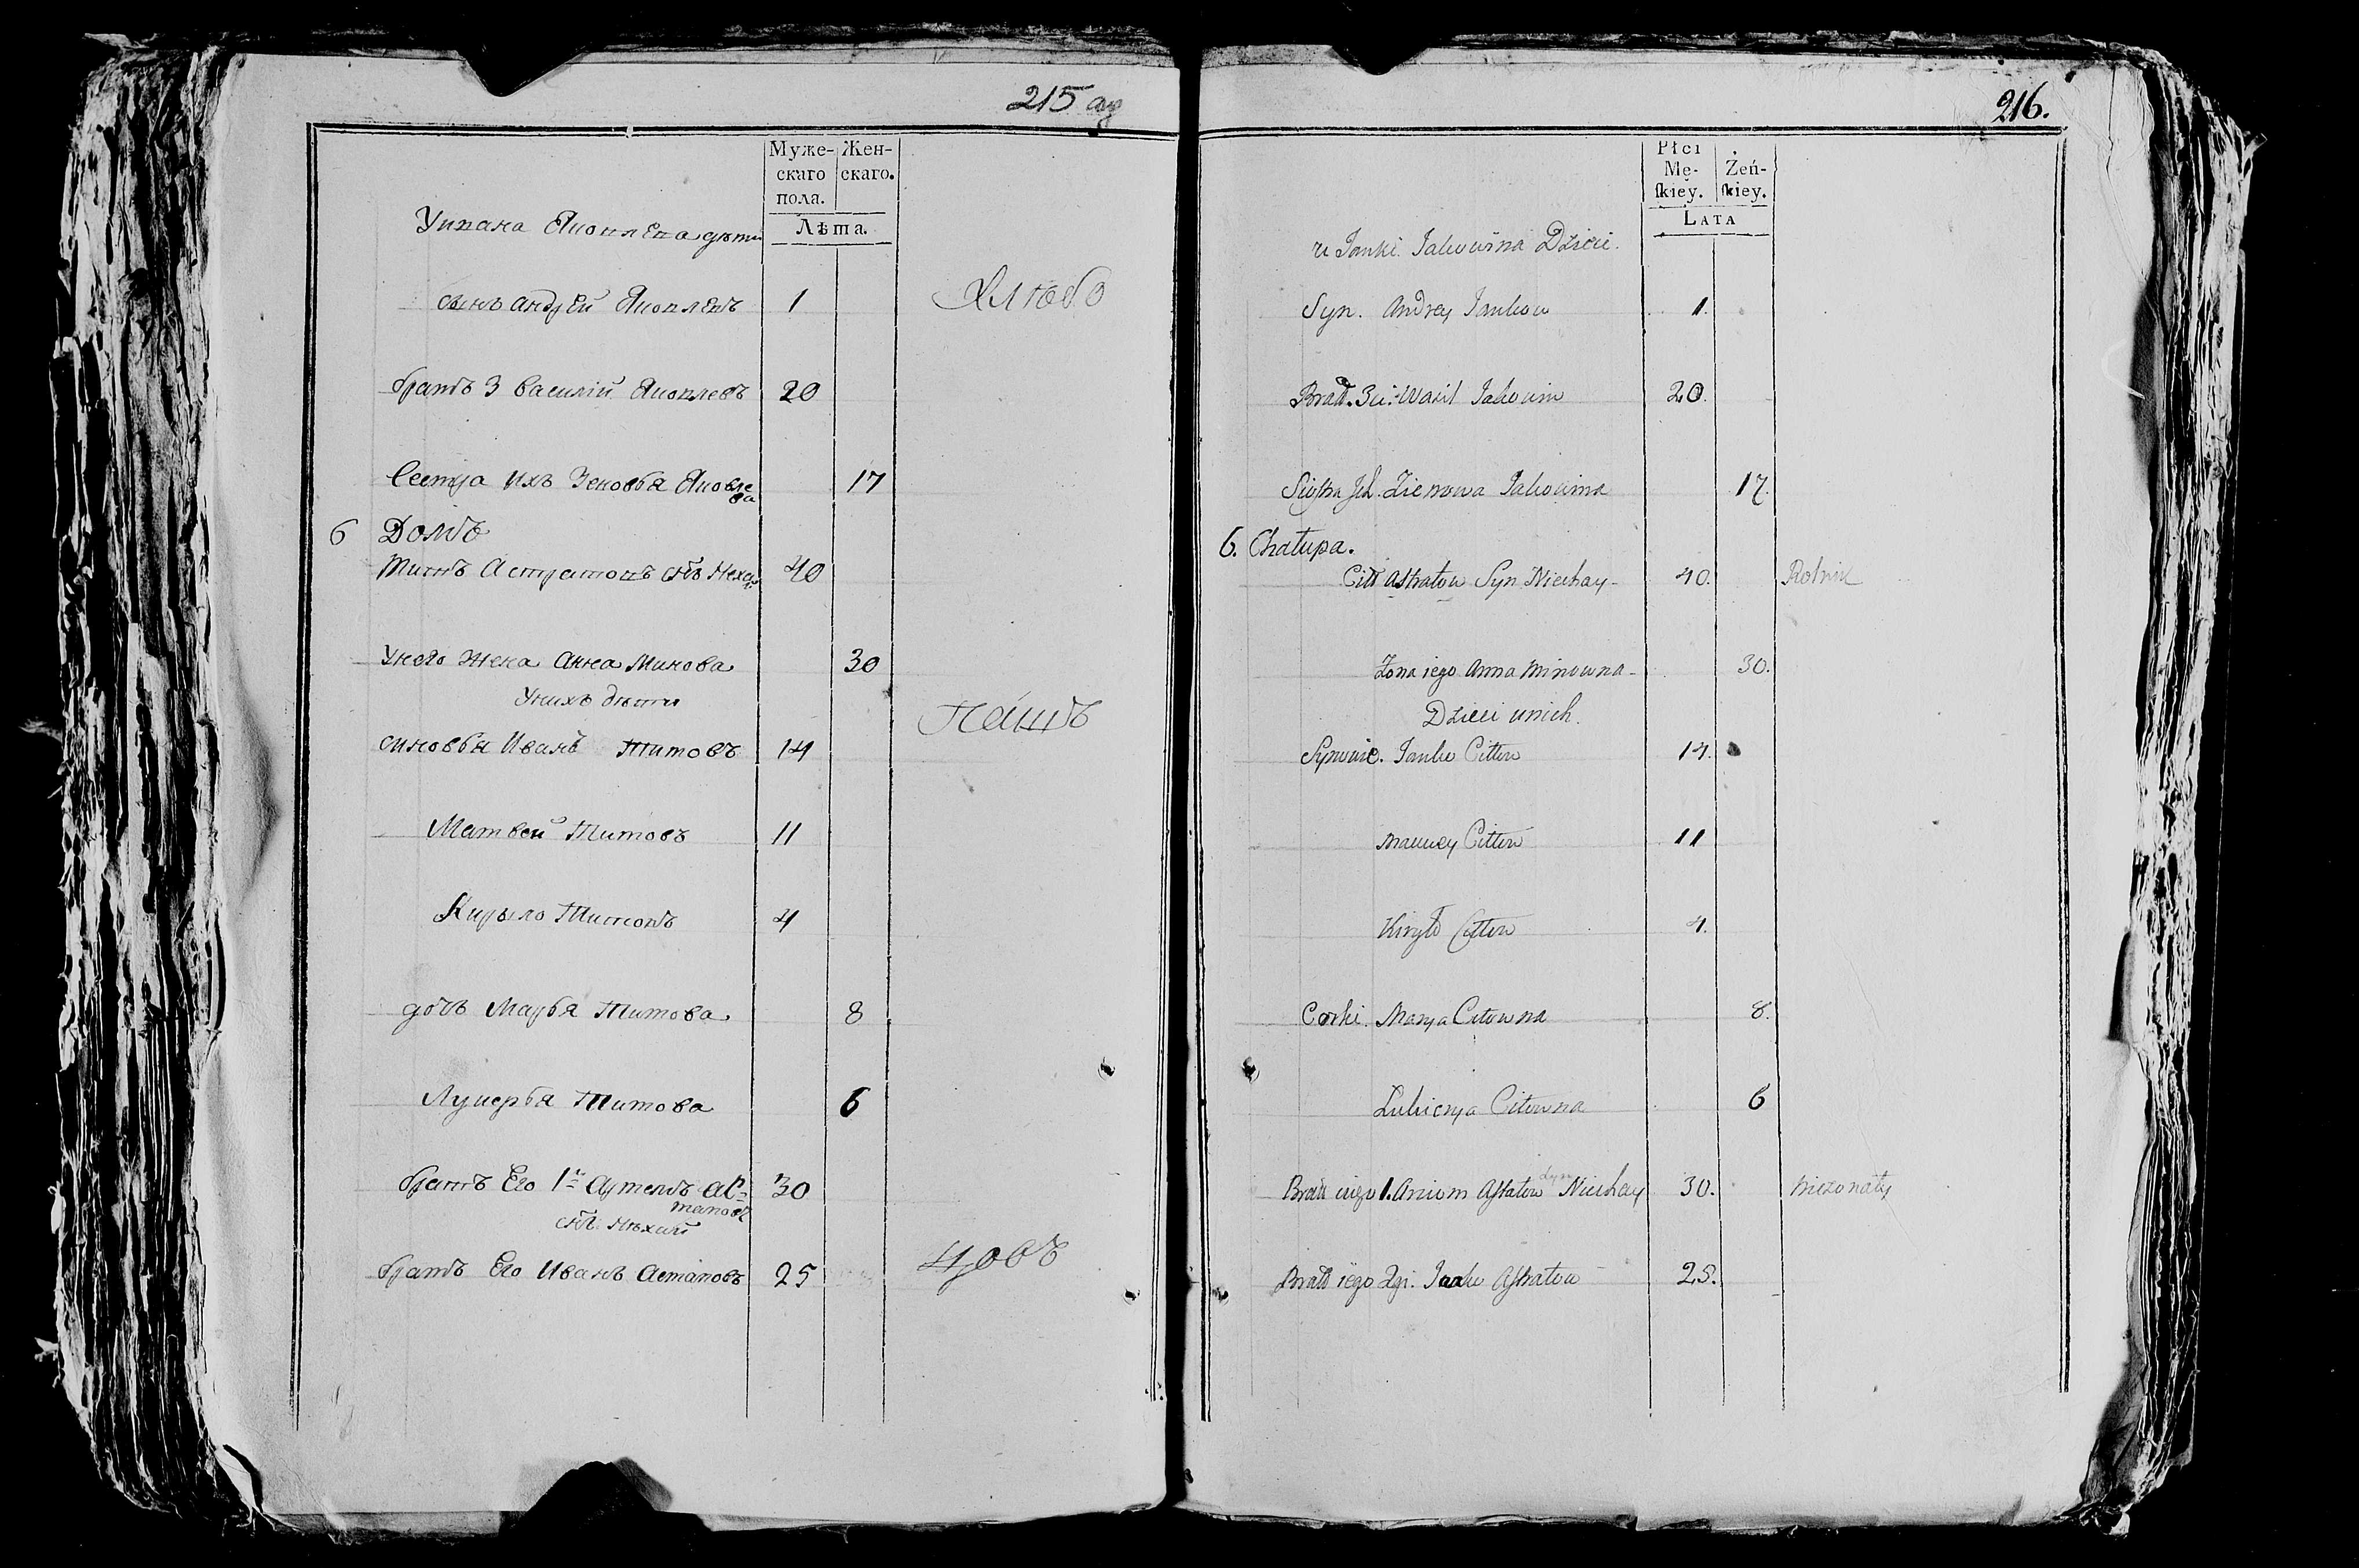 215 об
Муже-скаго пола. Жен-скаго.
Лѣта.
Уивана Яковлева дѣти
сынъ андрей Яковлевъ 1
Хлѣбо
братъ 3 василій Яковлевъ 20
Сестра ихъ Зеновья Яковлева 17
6 Домъ
Титъ Астратовъ снъ Нехай 40
Унего жена Анна Минова 30
Унихъ дѣти
пашъ
синовья Иванъ Титовъ 14
Матвей Титовъ 11
Кирыло Титовъ 4
дочъ Марья Титова 8
Лукерья Титова 6
братъ Его 1й Артемъ Астаповъ 30
снъ Нѣхай
цовъ
братъ Его Иванъ Астаповъ 25
216.
Płci Mę-skiey. Żeń-skiey.
LATA
u Janki Jakowina Dzieci.
Syn. Andrey Jankow 1.
Brat. 3ci. Wasil Jakowin 20.
Siostra Ich. Zienowa Jakowina 17.
6. Chałupa.
Citt Astratow Syn Niechay 40. Rolnik
Żona iego Anna Minowna 30.
Dzieci unich.
Synowie. Janko Cittow 14.
Maciey Cittow 11
Kiryło Cittow 4.
Corki. Marya Citowna 8.
Lukierya Citowna 6
Brat iego 1. Arciom Astratow Syn Niechay 30. nieżonaty
Brat iego 2gi. Janko Astratow 25.